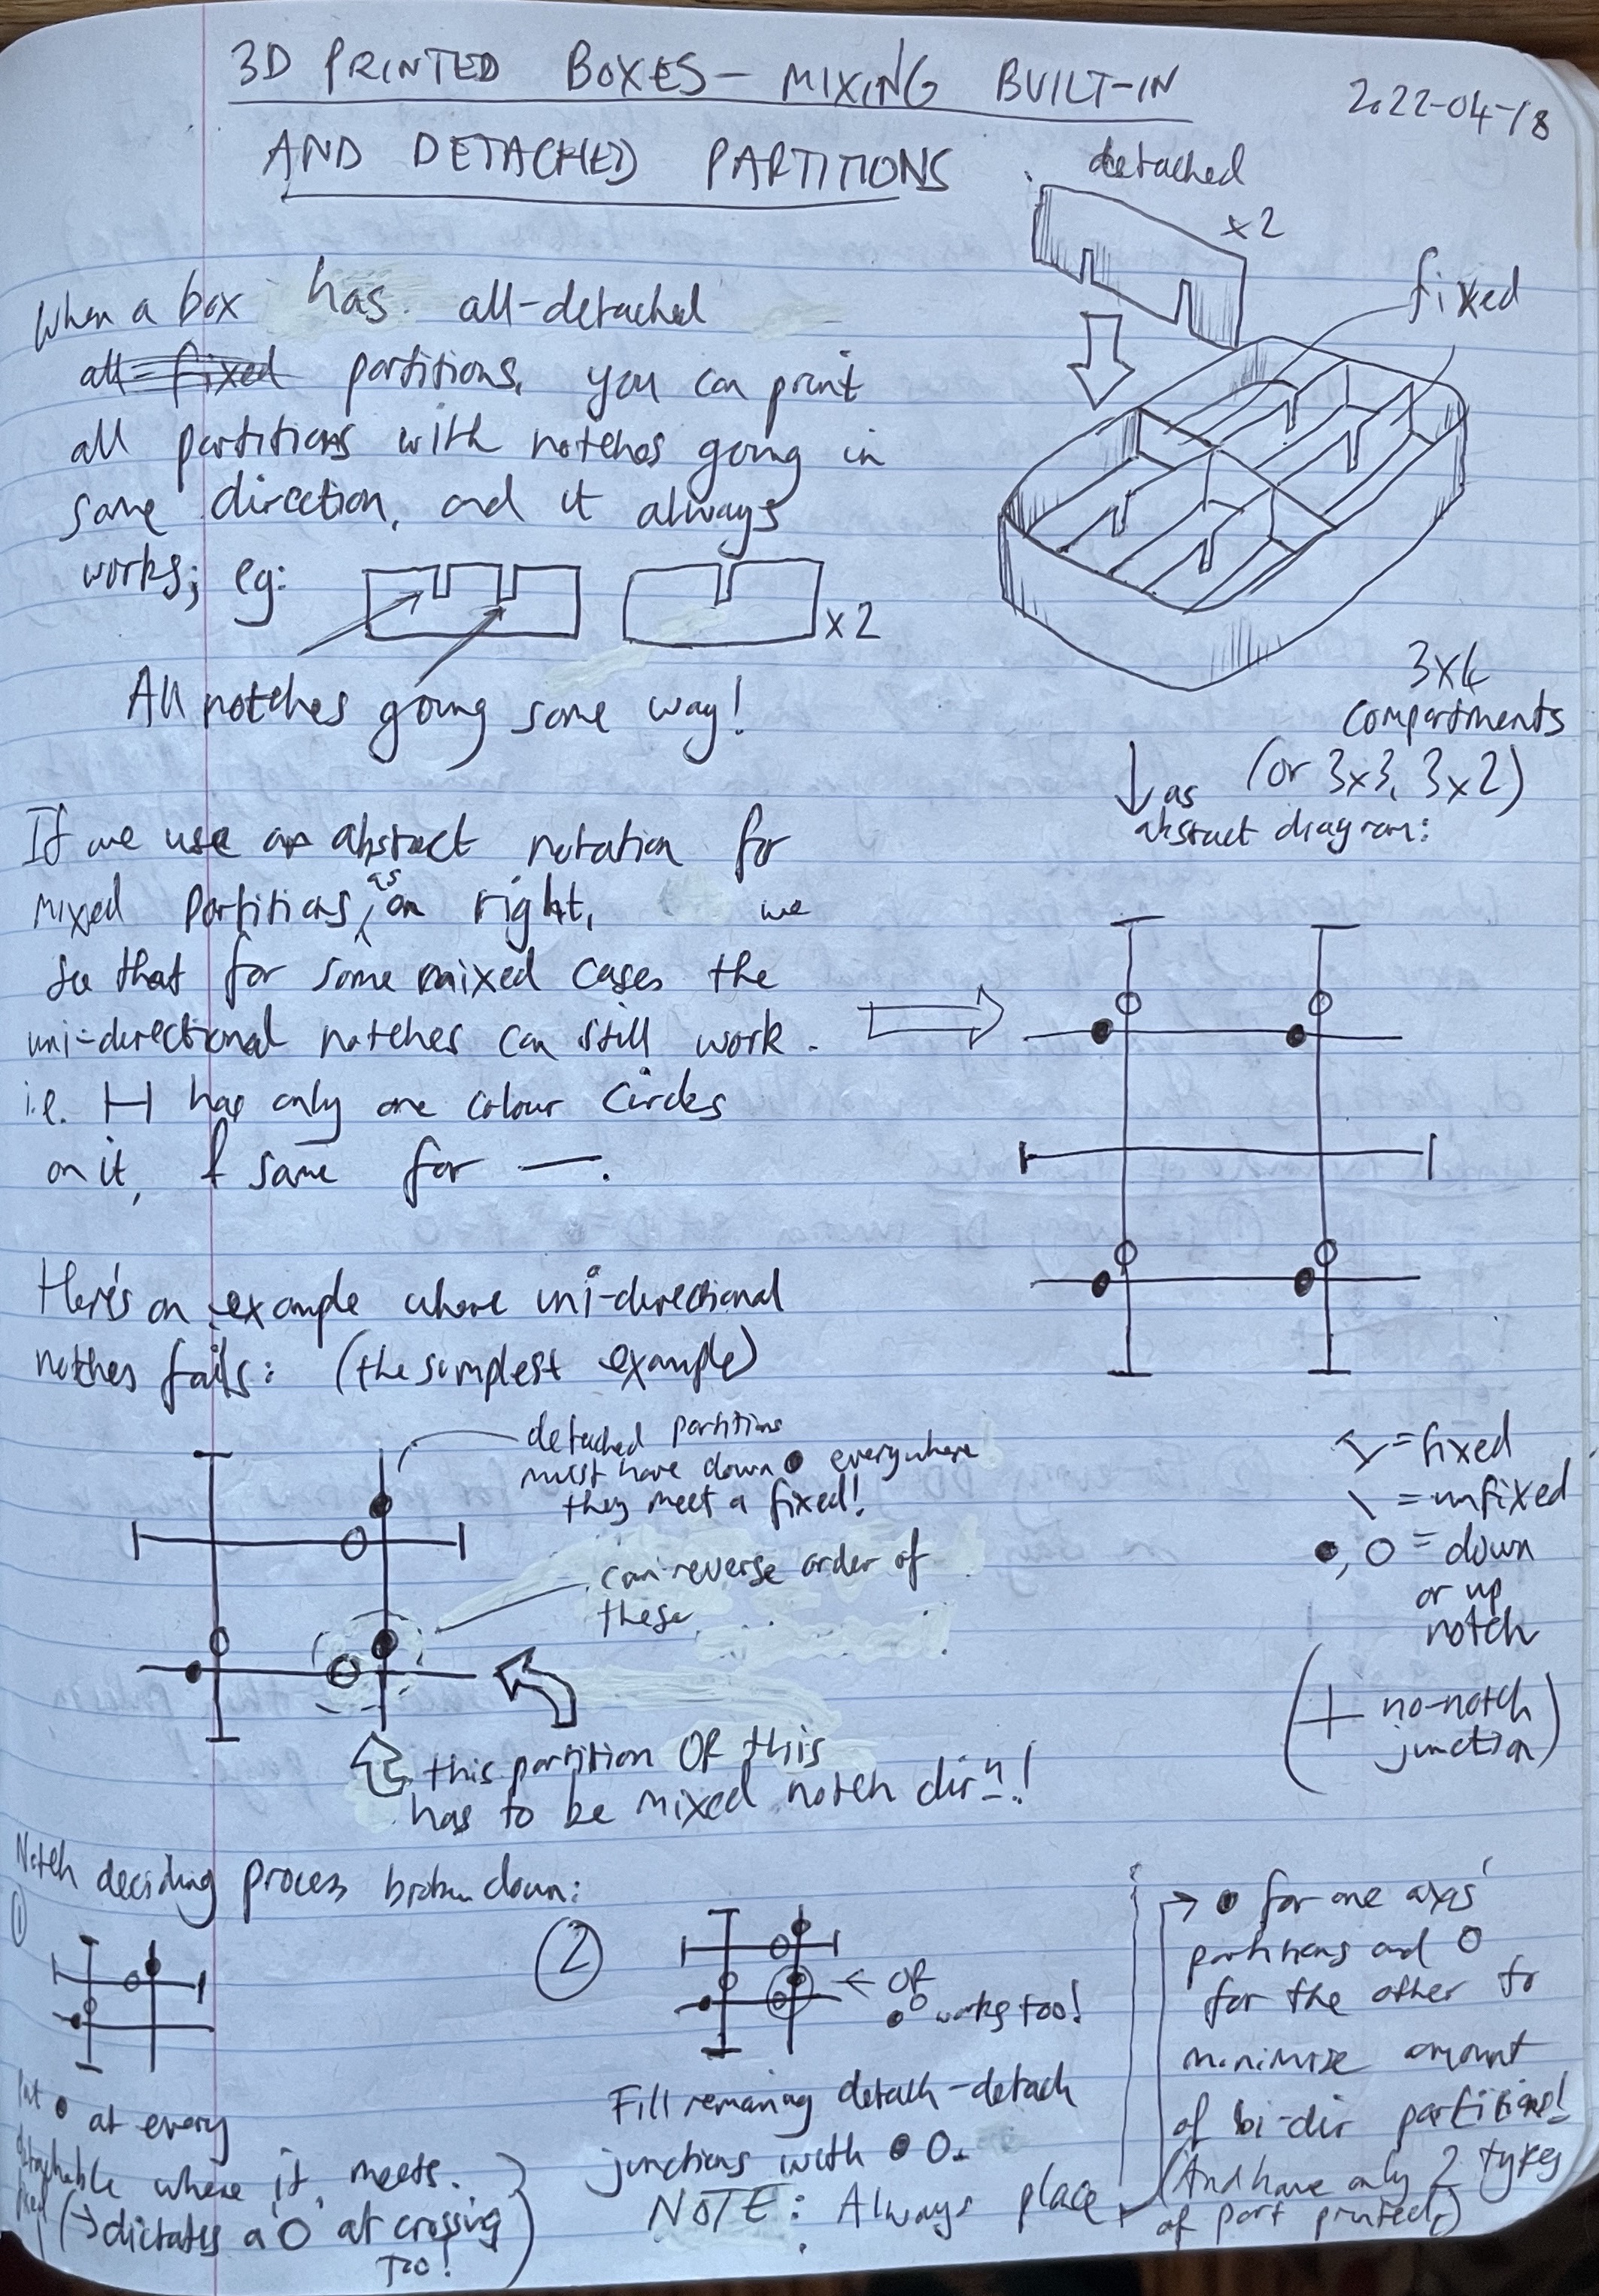 3D PRINTED BOXES – MIXING BUILT-IN
AND DETACHED PARTITIONS
2022-04-18
detached
x2
fixed
When a box has all-detached
all-fixed partitions, you can print
all partitions with notches going in
same direction, and it always
works; eg:
x2
All notches going same way!
3x4
compartments
(or 3x3, 3x2)
↓ as
abstract diagram:
If we use an abstract notation for
mixed partitions, as on right, we
see that for some mixed cases the
uni-directional notches can still work.
i.e. H has only one colour circles
on it, & same for —.
Here's an example where uni-directional
notches fails: (the simplest example)
detached partitions
must have down ● everywhere
they meet a fixed!
can reverse order of
these
this partition OR this
has to be mixed notch dirⁿ!
I = fixed
\ = unfixed
●, O = down
or up
notch
(+ no-notch
junction)
Notch deciding process broken down:
①
Put ● at every
detachable where it meets
fixed
(→ dictates a O at crossing
too!)
②
← OR
● O works too!
Fill remaining detach-detach
junctions with ● O.
NOTE: Always place
→ ● for one axis'
partitions and O
for the other to
minimize amount
of bi-dir partitions!
(And have only 2 types
of part printed)